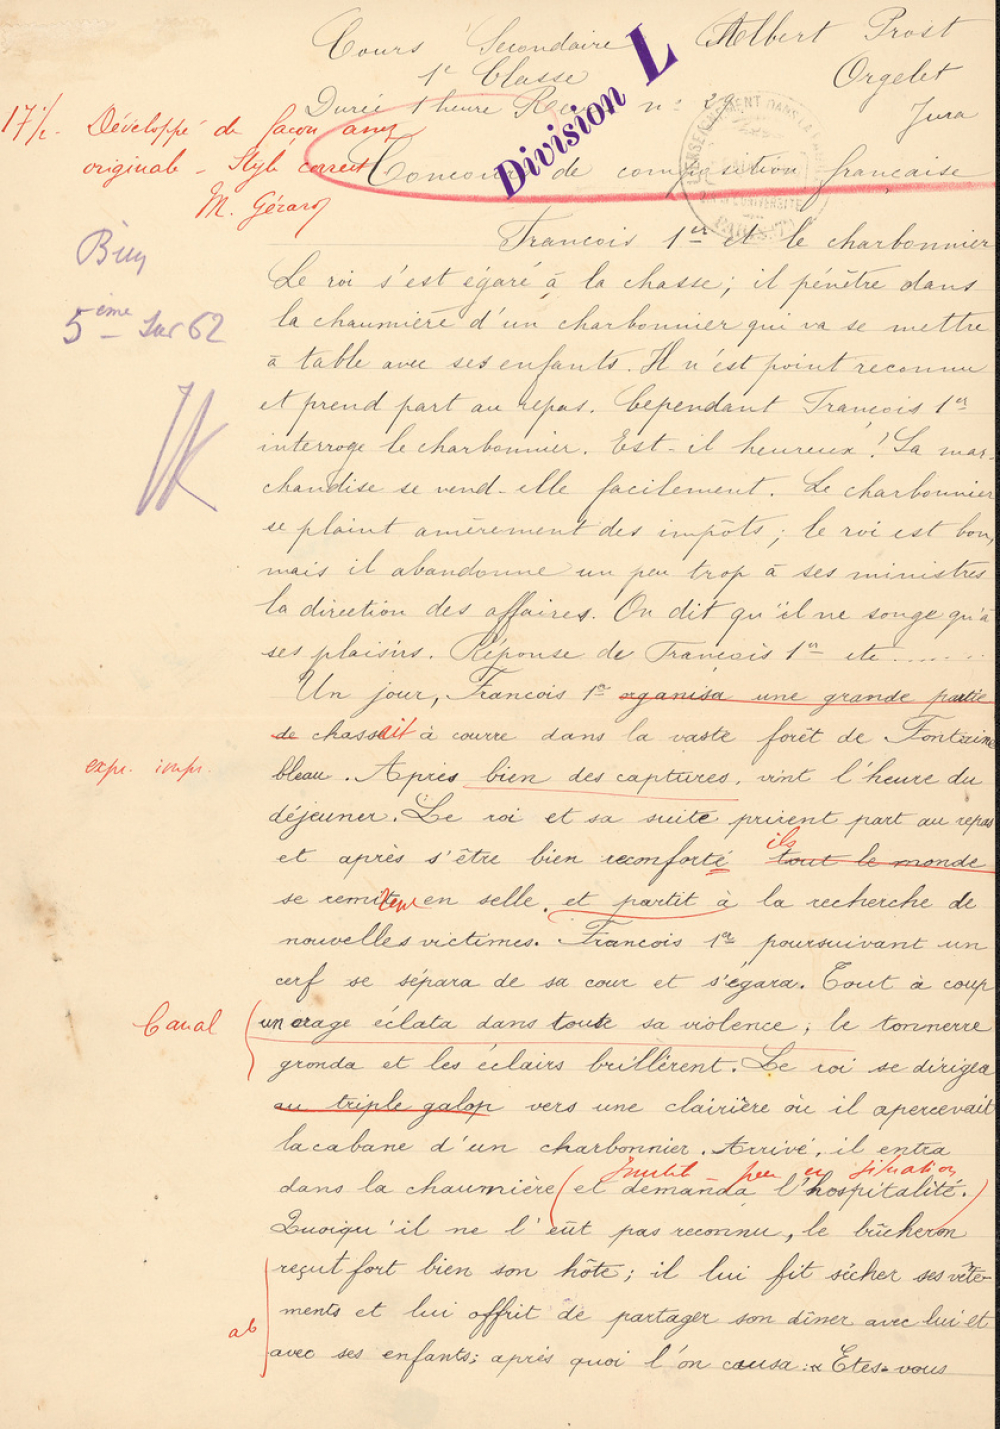 Cours Secondaire Albert Prost
1e Classe Orgelet
Durée 1 heure n° 29 Jura
Division L
17 1/2. Développé de façon assez
originale - Style correct
M. Gérard
Concours de composition française
Bien
5ème sur 62
François 1er et le charbonnier
Le roi s'est égaré à la chasse ; il pénètre dans
la chaumière d'un charbonnier qui va se mettre
à table avec ses enfants. Il n'est point reconnu
et prend part au repas. Cependant François 1er
interroge le charbonnier. Est-il heureux ? Sa mar-
chandise se vend-elle facilement. Le charbonnier
se plaint amèrement des impôts ; le roi est bon,
mais il abandonne un peu trop à ses ministres
la direction des affaires. On dit qu'il ne songe qu'à
ses plaisirs. Réponse de François 1er etc........
Un jour, François 1er organisa une grande partie
de chassait à courre dans la vaste forêt de Fontaine
expr. impr.
bleau. Après bien des captures, vint l'heure du
déjeuner. Le roi et sa suite prirent part au repas
ils
et après s'être bien reconforté tout le monde
se remirent en selle, et partit à la recherche de
nouvelles victimes. François 1er poursuivant un
cerf se sépara de sa cour et s'égara. Tout à coup
Banal
un orage éclata dans toute sa violence ; le tonnerre
gronda et les éclairs brillèrent. Le roi se dirigea
au triple galop vers une clairière où il apercevait
la cabane d'un charbonnier. Arrivé, il entra
Inutile - peu en situation
dans la chaumière (et demanda l'hospitalité.)
Quoiqu'il ne l'eût pas reconnu, le bûcheron
reçut fort bien son hôte ; il lui fit sécher ses vête-
ments et lui offrit de partager son dîner avec lui et
ab
avec ses enfants ; après quoi l'on causa : « Etes-vous